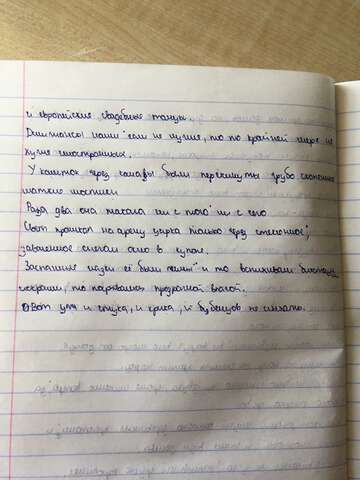 и европейские свадебные танцы.
Дилижансы наши если не лучше, то по крайней мере не
хуже иностранных.
У калиток через канавы были перекинуты грубо сколоченные
шаткие мостики
Раза два она плакала ни с того ни с сего
Свет проникал на арену цирка только через стеклянное,
заваленное снегом окно в куполе.
Заспанные глаза её были темны и то вспыхивали блестящими
искрами, то покрывались прозрачной влагой.
Вот уже и стука, и крика, и бубенцов не слыхать.